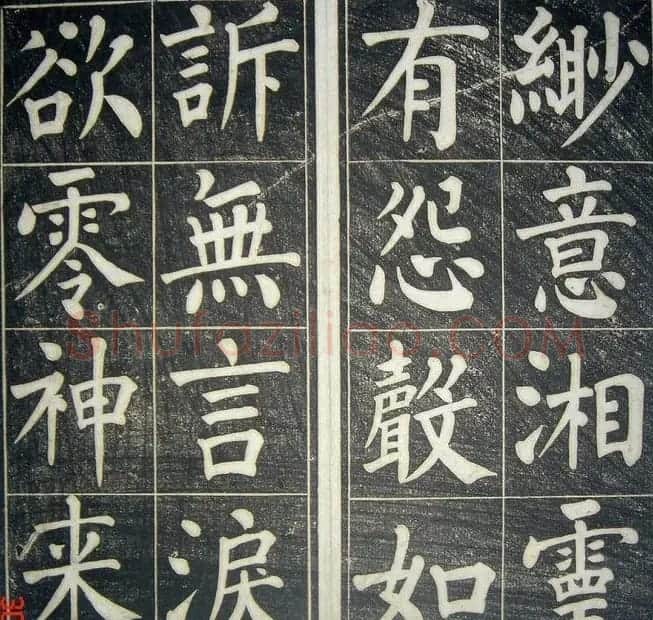 緲意湘靈
有怨聲如
訴無言淚
欲零神来
Shufaziliao.COM